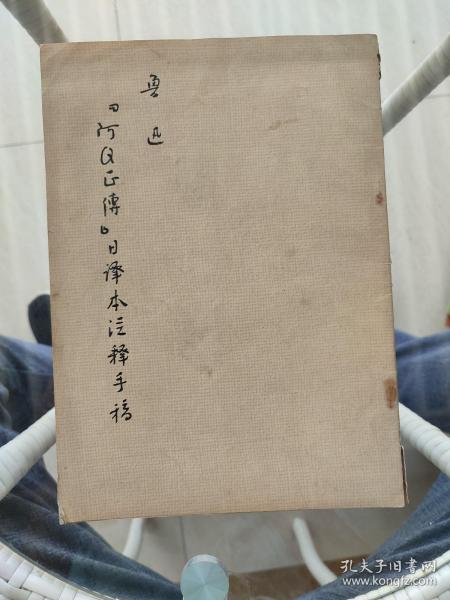 鲁迅
『阿Q正傳』日译本注釋手稿
孔夫子旧书网
www.kongfz.com